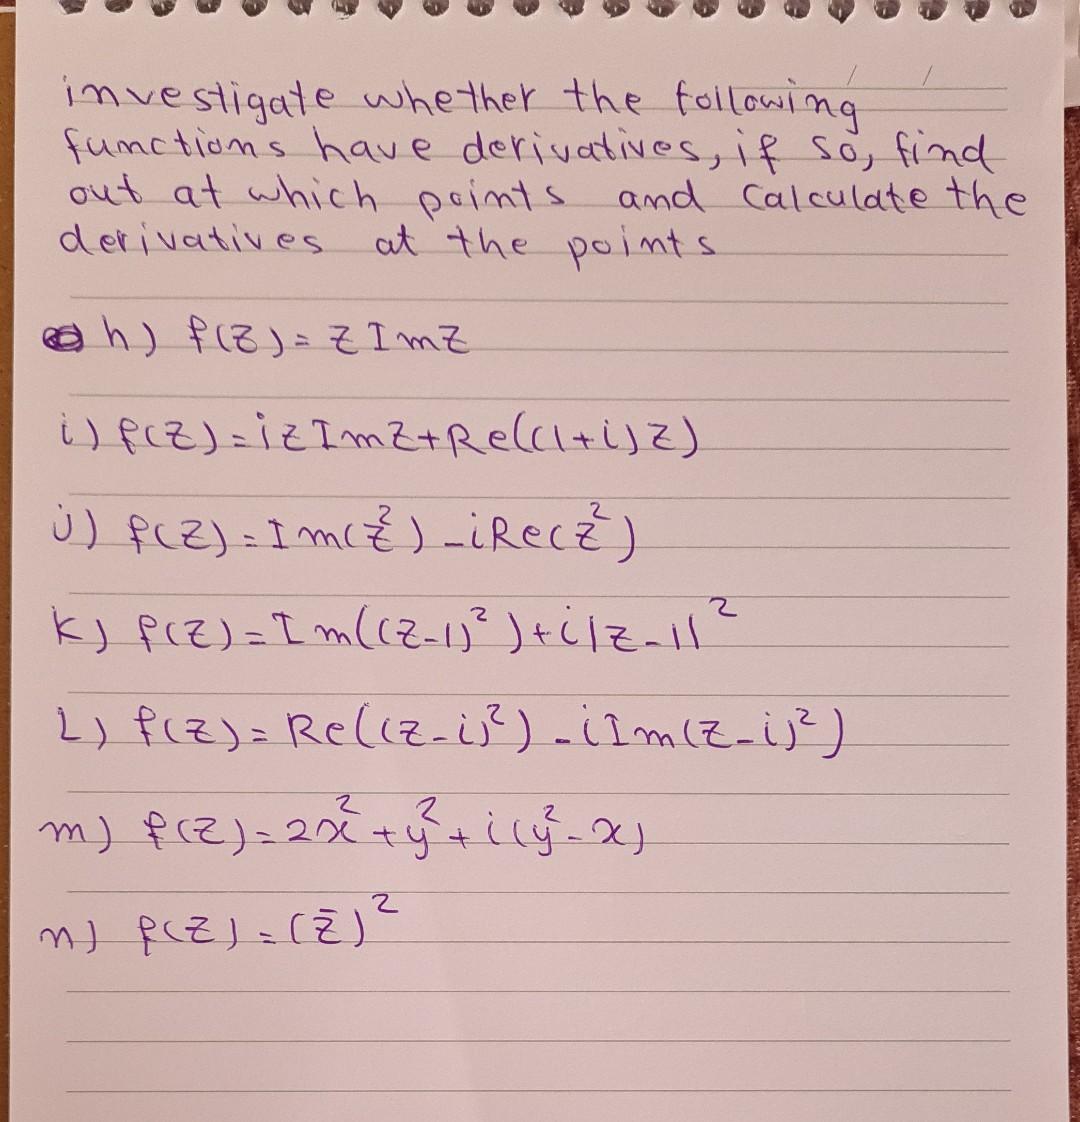 investigate whether the following
functions have derivatives, if so, find
out at which points and calculate the
derivatives at the points
h) f(z) = z Imz
i) f(z) = iz Imz + Re((1+i)z)
j) f(z) = Im(z²) - iRe(z²)
k) f(z) = Im((z-1)²) + i|z-1|²
L) f(z) = Re((z-i)²) - iIm(z-i)²)
m) f(z) = 2x² + y² + i(y² - x)
n) f(z) = (z̄)²